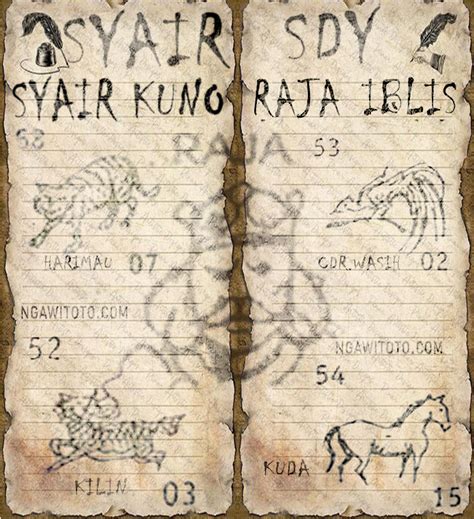 SYAIR
SYAIR KUNO
RAJA
HARIMAU 07
NGAWITOTO.COM
52
KILIN 03
SDY
RAJA IBLIS
53
CDR.WASIH 02
NGAWITOTO.COM
54
KUDA 15